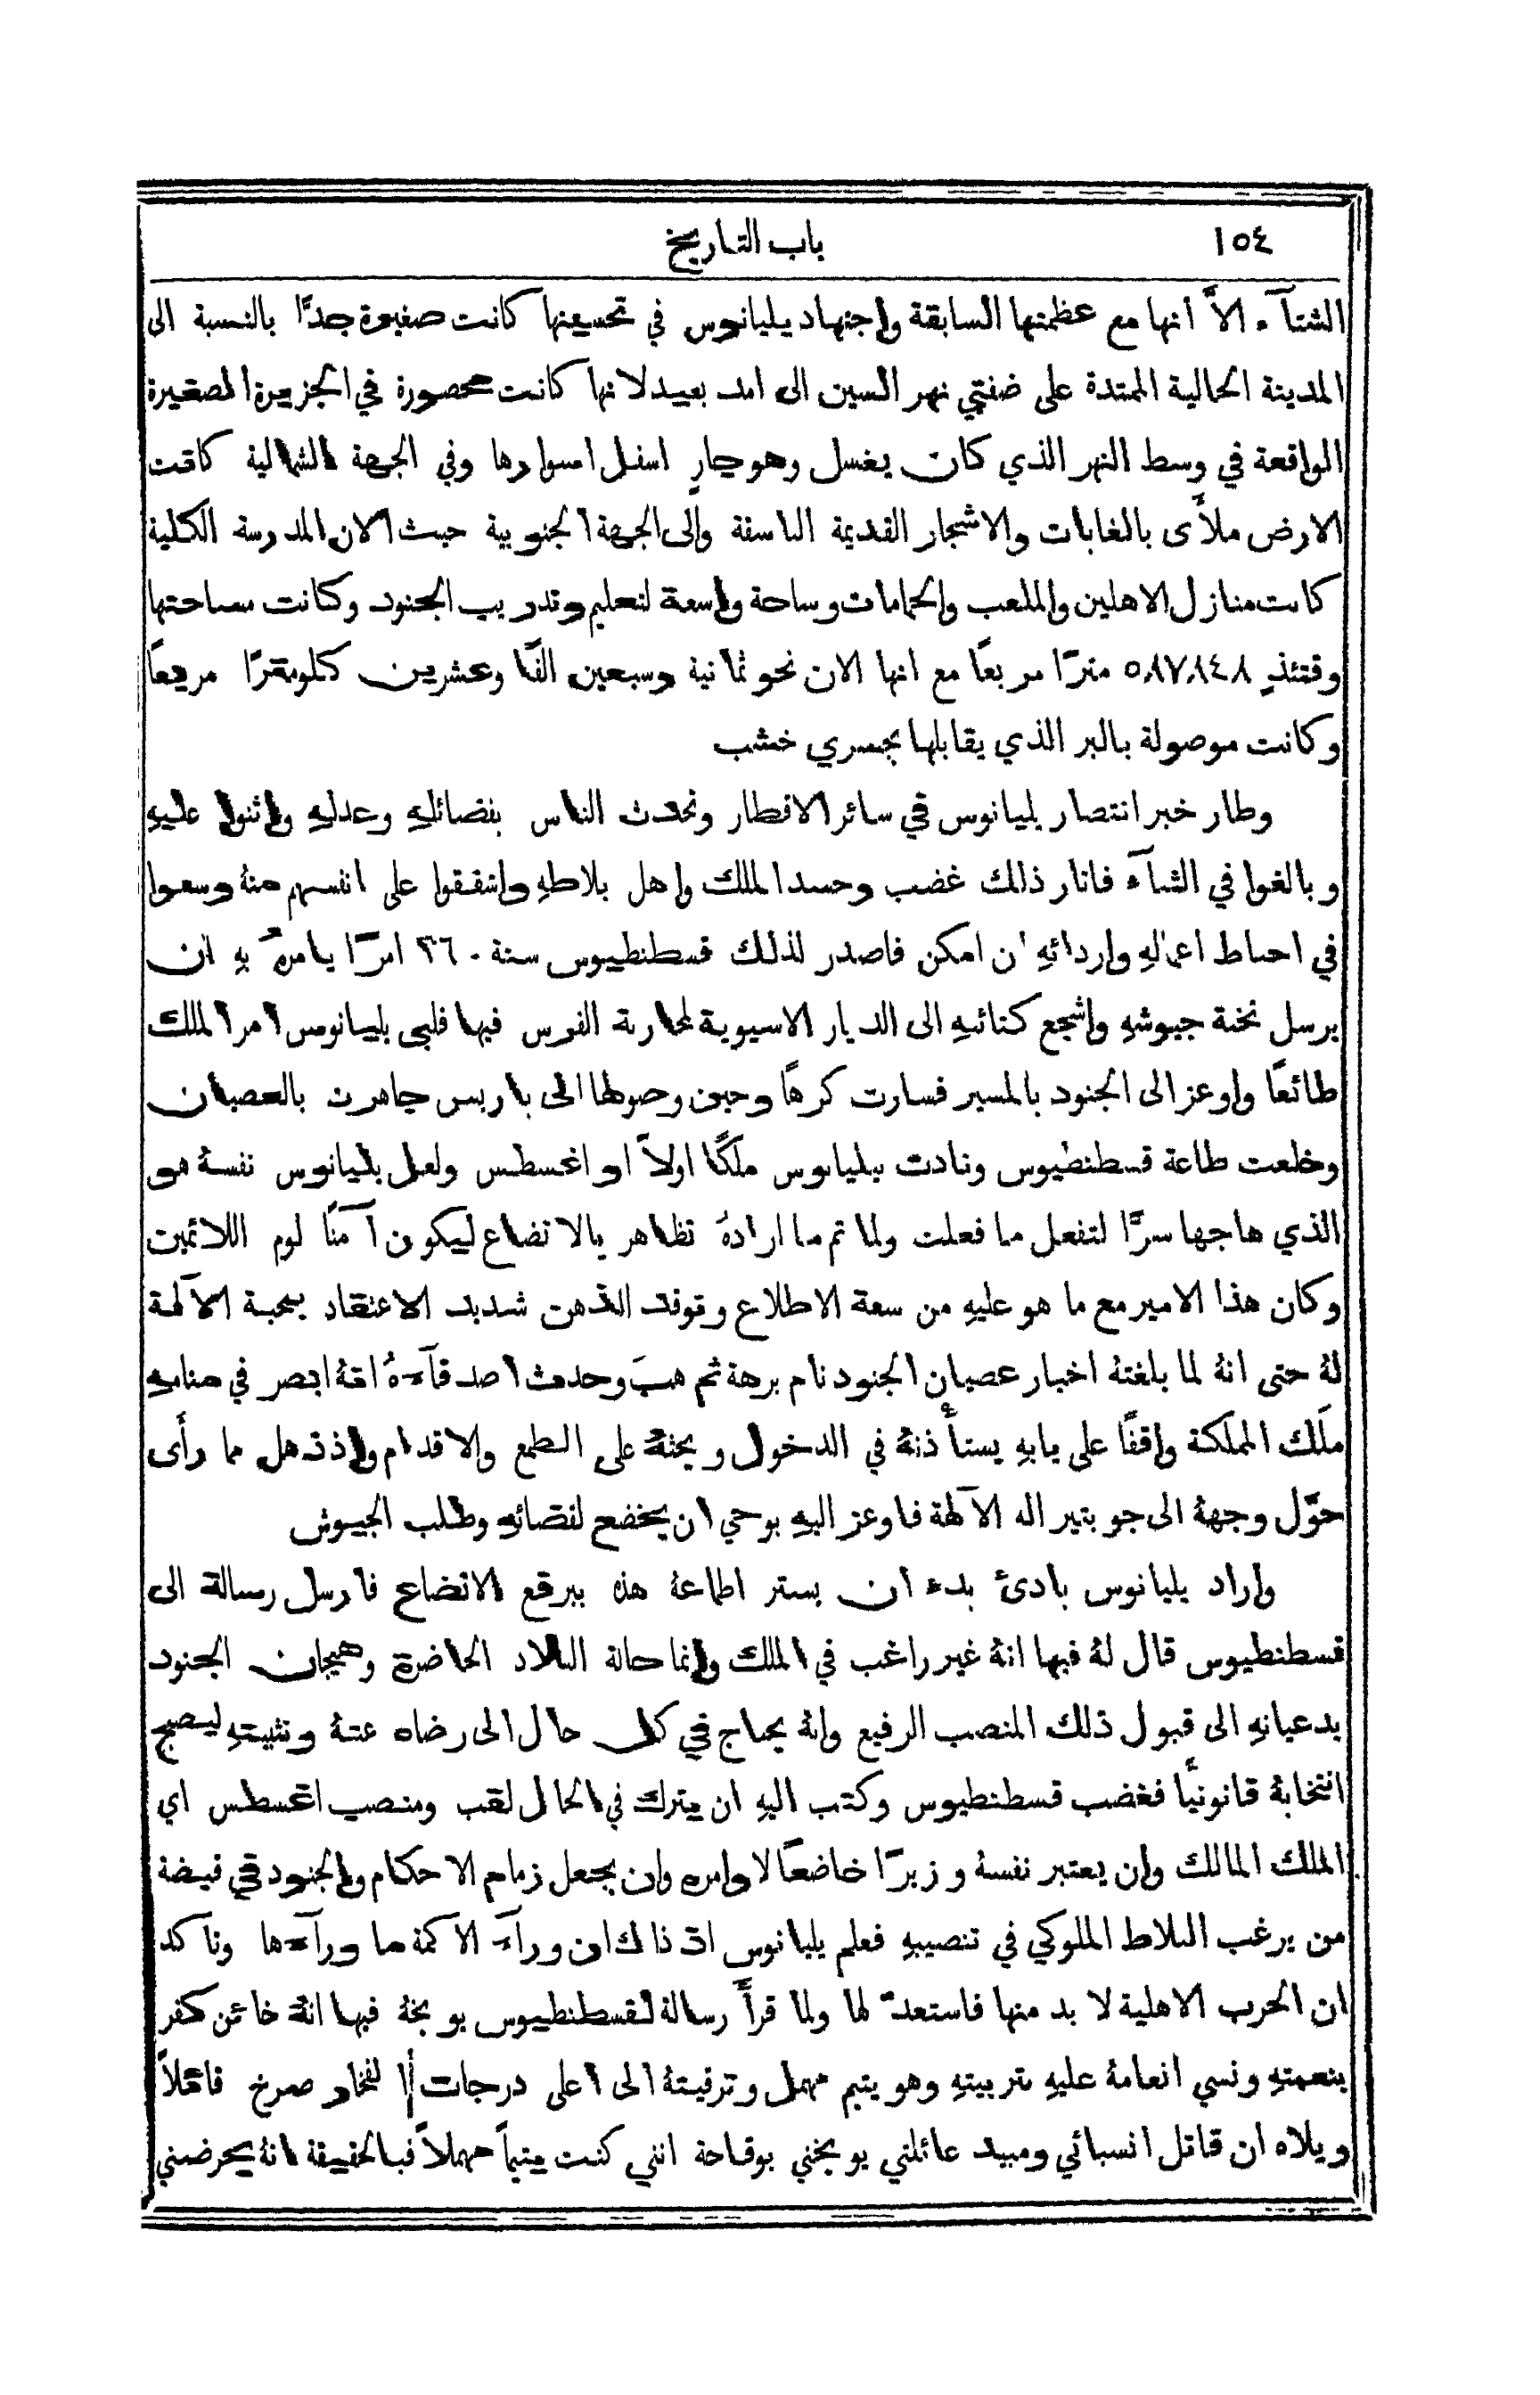 ١٥٤ باب التاريخ
الشتآء الاَّ انها مع عظمتها السابقة واجتهاد يليانوس في تحسينها كانت صغيرة جدًّا بالنسبة الى
المدينة الحالية الممتدة على ضفتي نهر السين الى امد بعيد لانها كانت محصورة في الجزيرة الصغيرة
الواقعة في وسط النهر الذي كان يغسل وهو جارٍ اسفل اسوارها وفي الجهة الشمالية كانت
الارض ملأَى بالغابات والاشجار القديمة الباسقة والى الجهة الجنوبية حيث الان المدرسة الكلية
كانت منازل الاهلين والملعب والحمامات وساحة واسعة لتعليم وتدريب الجنود وكانت مساحتها
وقتئذٍ ٥٨٧٨٤٨ مترًا مربعًا مع انها الان نحو ثمانية وسبعين الفًا وعشرين كلومترًا مربعًا
وكانت موصولة بالبر الذي يقابلها بجسري خشب
وطار خبر انتصار يليانوس في سائر الاقطار وتحدث الناس بفضائلهِ وعدلهِ واثنوا عليهِ
وبالغوا في الثنآء فاثار ذلك غضب وحسد الملك واهل بلاطهِ واشفقوا على انفسهم منهُ وسعوا
في احباط اعمالهِ واردائهِ ان امكن فاصدر لذلك قسطنطيوس سنة ٣٦٠ امرًا يامرهُ بهِ ان
يرسل نخبة جيوشهِ واشجع كتائبهِ الى الديار الاسيوية لمحاربة الفرس فيها فلبى يليانوس امر الملك
طائعًا واوعز الى الجنود بالمسير فسارت كرهًا وحين وصولها الى باريس جاهرت بالعصيان
وخلعت طاعة قسطنطيوس ونادت بيليانوس ملكًا اولاً او اغسطس ولعل يليانوس نفسهُ هو
الذي هاجها سرًّا لتفعل ما فعلت ولما تم ما ارادهُ تظاهر بالاتضاع ليكون آمنًا لوم اللائمين
وكان هذا الامير مع ما هو عليهِ من سعة الاطلاع وتوقد الذهن شديد الاعتقاد بمحبة الآلهة
لهُ حتى انهُ لما بلغتهُ اخبار عصيان الجنود نام برهة ثم هبَ وحدث اصدقآءهُ انهُ ابصر في منامهِ
ملَك المملكة واقفًا على بابهِ يستأْذنهُ في الدخول ويحثهُ على الطمع والاقدام واذ ذهل مما رأَى
حوَّل وجههُ الى جوبتير اله الآلهة فاوعز اليهِ بوحي ان يخضع لقضائهِ وطلب الجيوش
واراد يليانوس بادئ بدء ان يستر اطماعهُ هذه ببرقع الاتضاع فارسل رسالة الى
قسطنطيوس قال لهُ فيها انهُ غير راغب في الملك وانما حالة البلاد الحاضرة وهيجان الجنود
يدعيانهِ الى قبول ذلك المنصب الرفيع وانهُ يحتاج في كل حال الى رضاه عنهُ وتثبيتهِ ليصبح
انتخابهُ قانونيًّا فغضب قسطنطيوس وكتب اليهِ ان يترك في الحال لقب ومنصب اغسطس اي
الملك المالك وان يعتبر نفسهُ وزيرًا خاضعًا لاوامره وان يجعل زمام الاحكام والجنود في قبضة
من يرغب البلاط الملوكي في تنصيبهِ فعلم يليانوس اذ ذاك ان ورآء الاكمة ما ورآءها وتاكد
ان الحرب الاهلية لا بد منها فاستعدَّ لها ولما قرأَ رسالة لقسطنطيوس يوبخهُ فيها انهُ خائن كفر
بنعمتهِ ونسي انعامهُ عليهِ بتربيتهِ وهو يتيم مهمل وترقيتهُ الى اعلى درجات الفخار صرخ قائلاً
ويلاه ان قاتل انسبائي ومبيد عائلتي يوبخني بوقاحة انني كنت يتيماً مهملاً فبالحقيقة انهُ يحرضني